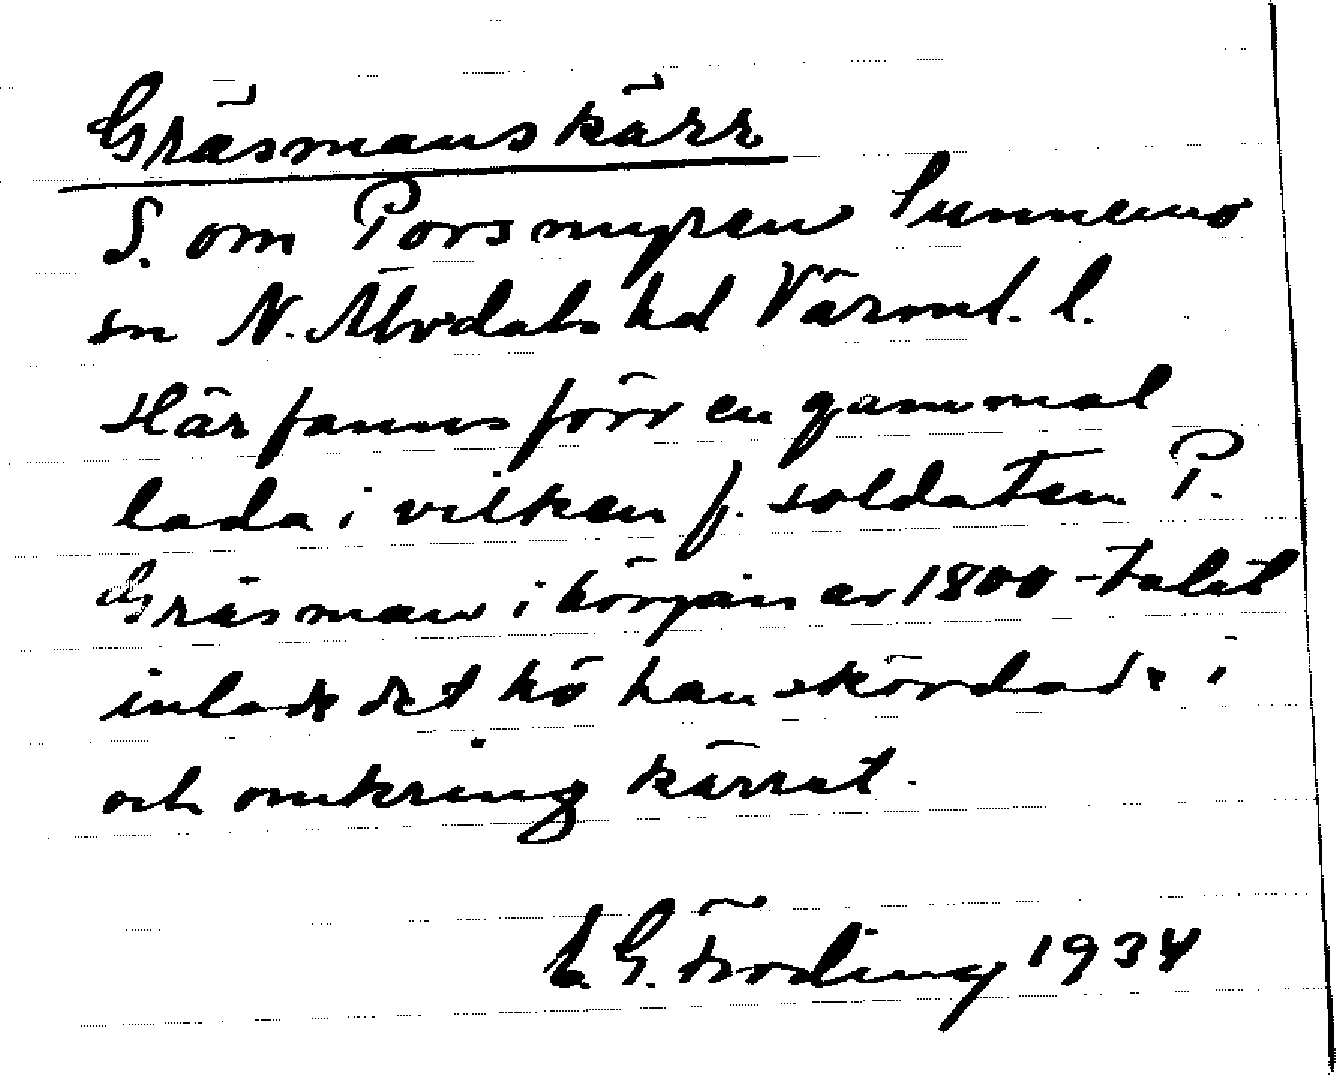 Gräsmanskärr
S. om Porsmyren Sunnemo
sn N. Älvdals hd Värml. l.
Här fanns förr en gammal
lada i vilken f. soldaten P.
Gräsman i början av 1800-talet
inlade det hö han skördade i
och omkring kärret.
E. G. Fröding 1934